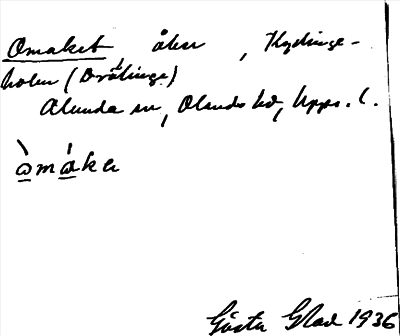 Omaket åker, Kydinge-
holm (Brätinge)
Alunda sn, Olands hd, Upps. l.
òmáka
Gösta Glad 1936